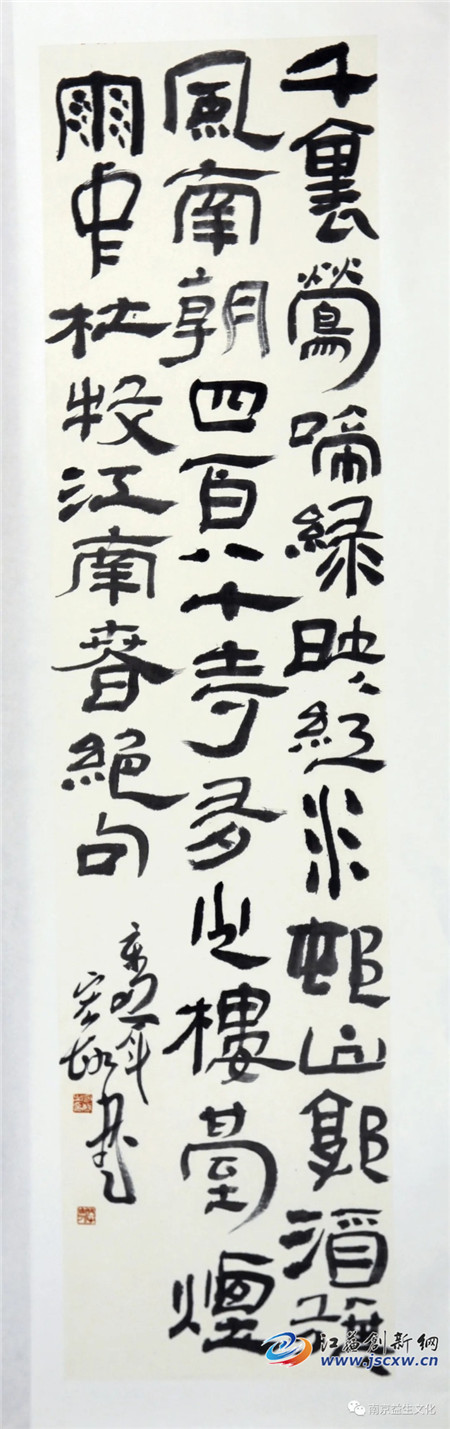 千裏鶯啼綠映紅水邨山郭酒旗
風南朝四百八十寺多少樓臺煙
雨中杜牧江南春絕句
年
書
江苏创新网
www.jscxw.cn
南京益生文化